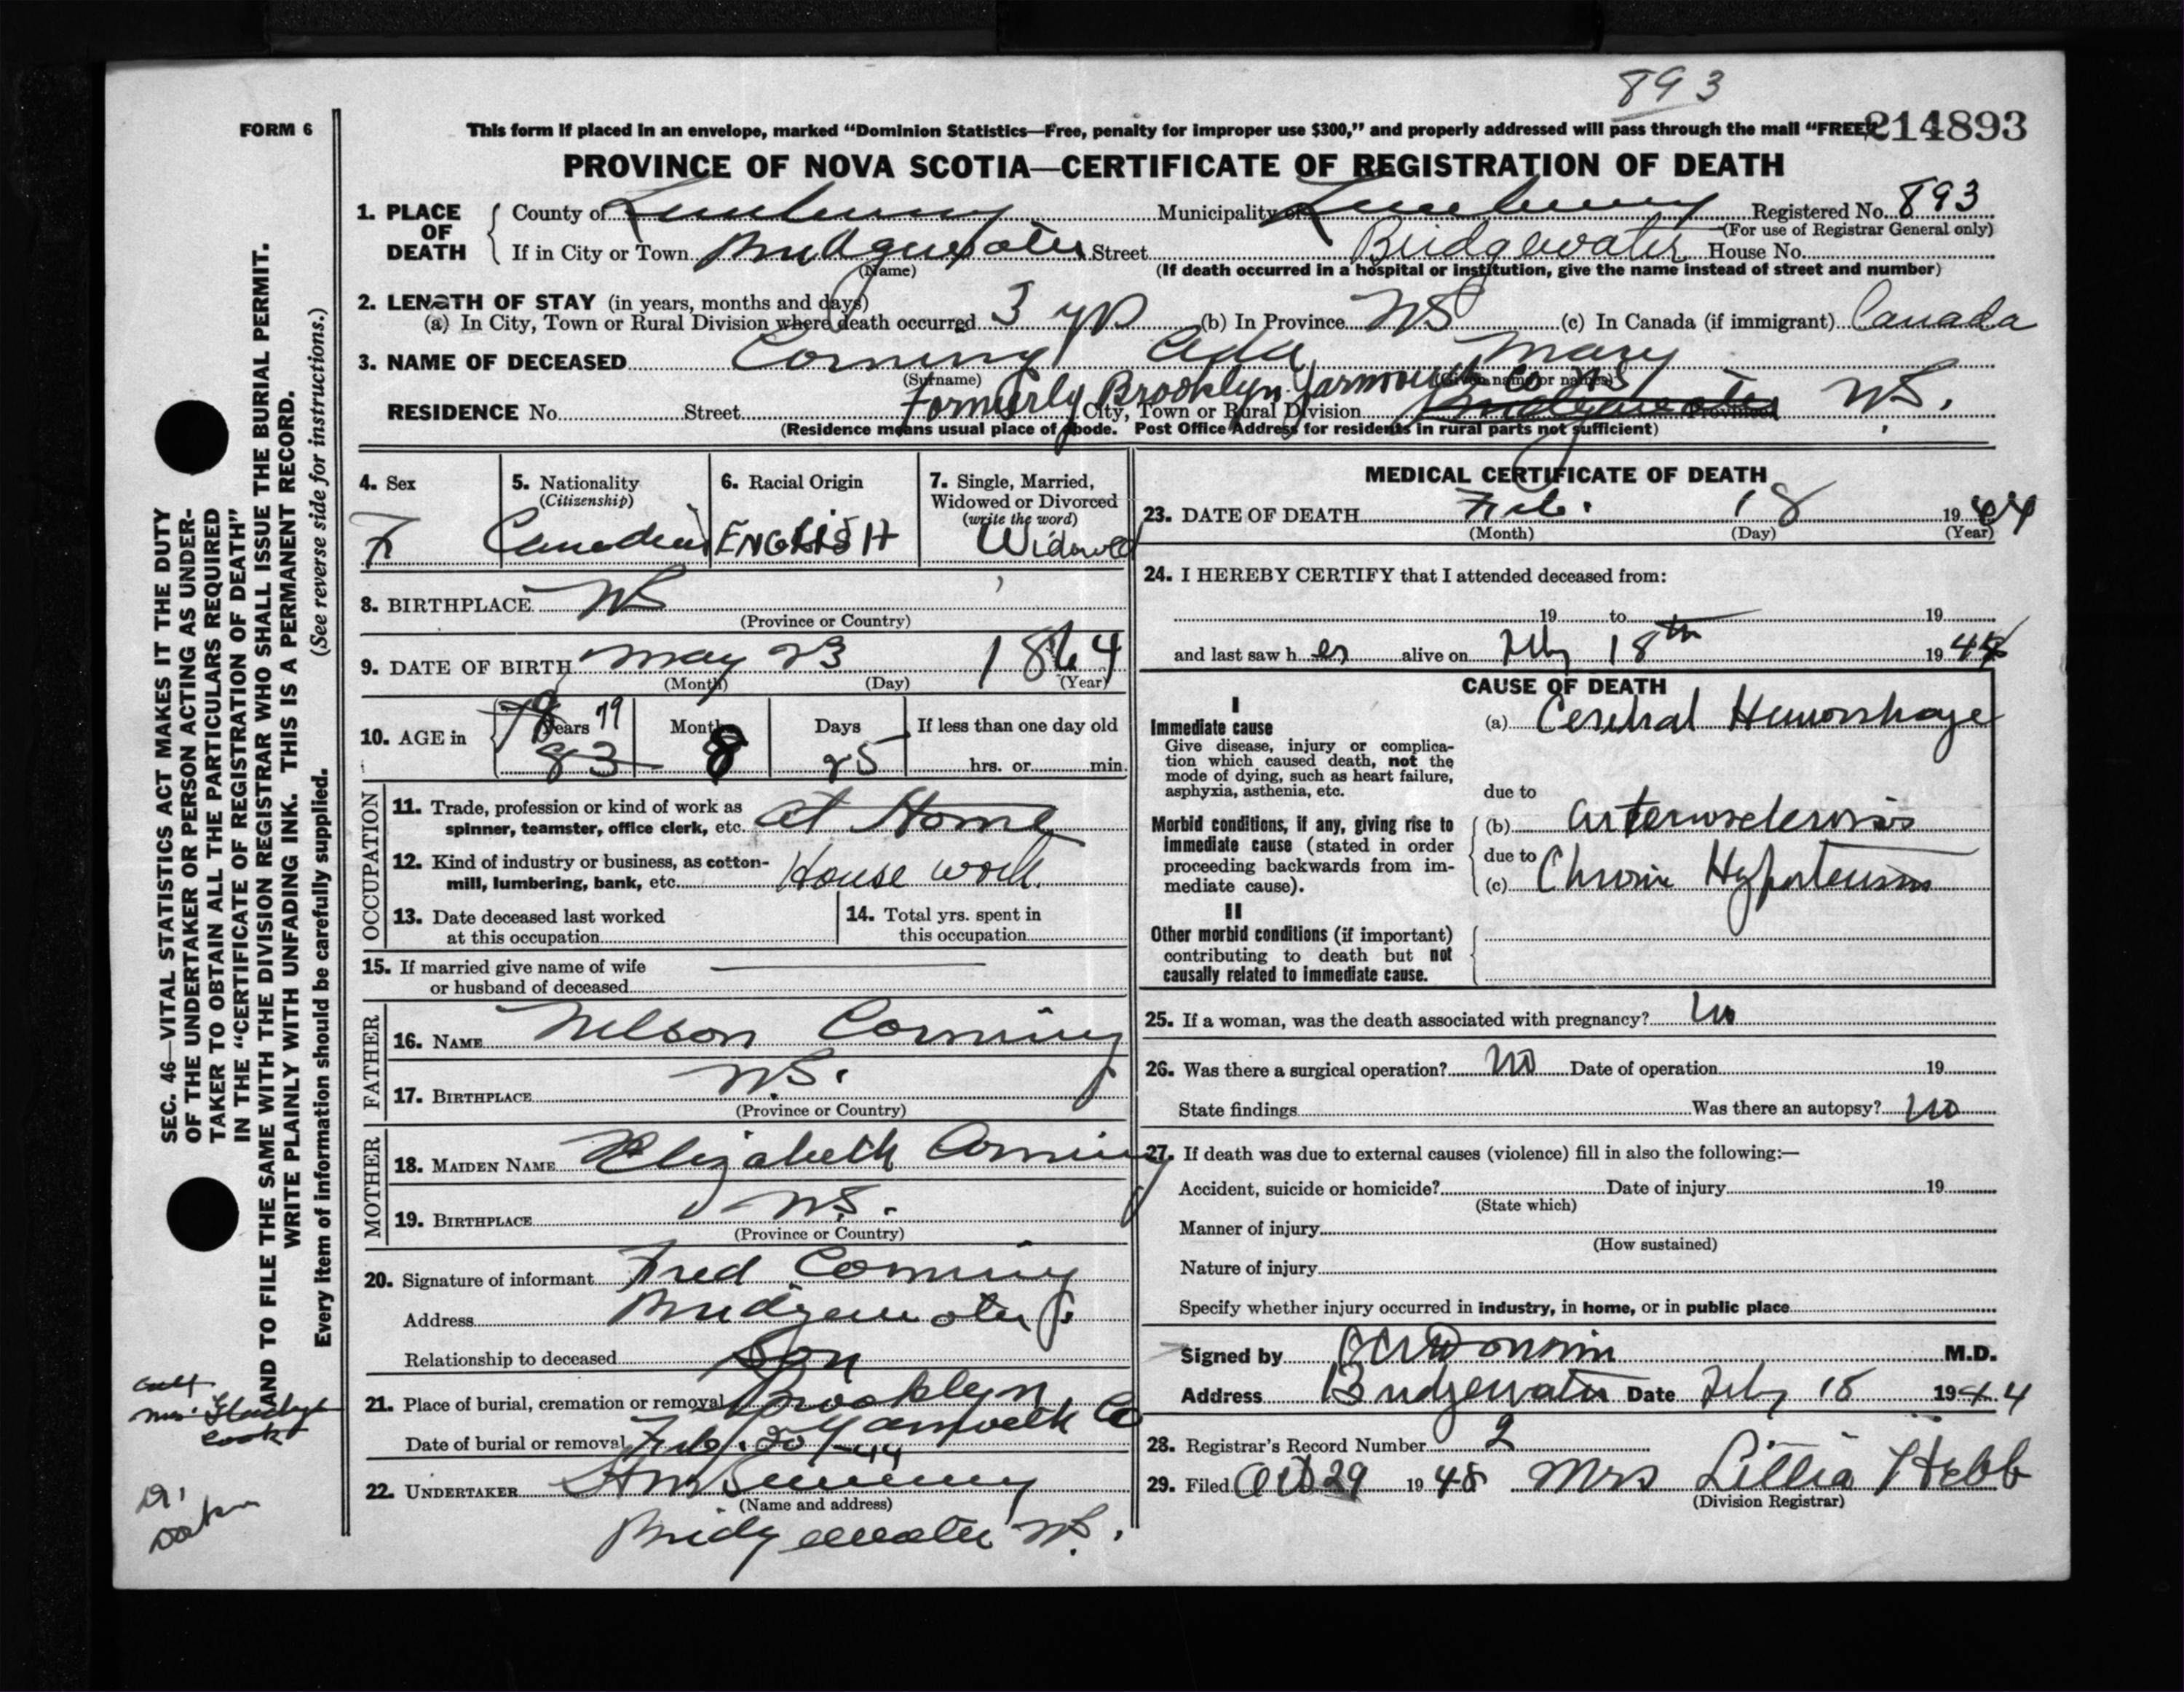 893
FORM 6
This form if placed in an envelope, marked “Dominion Statistics—Free, penalty for improper use $300,” and properly addressed will pass through the mail “FREE”
214893
PROVINCE OF NOVA SCOTIA—CERTIFICATE OF REGISTRATION OF DEATH
1. PLACE OF DEATH
County of Lunenburg Municipality of Lunenburg Registered No. 893
(For use of Registrar General only)
If in City or Town Bridgewater Street Bridgewater House No.
(Name)
(If death occurred in a hospital or institution, give the name instead of street and number)
2. LENGTH OF STAY (in years, months and days)
(a) In City, Town or Rural Division where death occurred 3 yrs (b) In Province NS (c) In Canada (if immigrant) Canada
3. NAME OF DECEASED Corning Ada Mary
(Surname) (Given name or names)
Formerly Brooklyn Yarmouth Co NS
RESIDENCE No. Street City, Town or Rural Division Bridgewater Province NS.
(Residence means usual place of abode. Post Office Address for residents in rural parts not sufficient)
4. Sex
F
5. Nationality
(Citizenship)
Canadian
6. Racial Origin
ENGLISH
7. Single, Married,
Widowed or Divorced
(write the word)
Widowed
8. BIRTHPLACE NS
(Province or Country)
9. DATE OF BIRTH May 23 1864
(Month) (Day) (Year)
10. AGE in
Years 79
83
Months 8
Days 25
If less than one day old
hrs. or min.
OCCUPATION
11. Trade, profession or kind of work as
spinner, teamster, office clerk, etc. at Home
12. Kind of industry or business, as cotton-
mill, lumbering, bank, etc. House work.
13. Date deceased last worked
at this occupation
14. Total yrs. spent in
this occupation
15. If married give name of wife
or husband of deceased
FATHER
16. NAME Nelson Corning
17. BIRTHPLACE N.S.
(Province or Country)
MOTHER
18. MAIDEN NAME Elizabeth Corning
19. BIRTHPLACE N.S.
(Province or Country)
20. Signature of informant Fred Corning
Address Bridgewater
Relationship to deceased Son
21. Place of burial, cremation or removal Brooklyn
Yarmouth Co
Date of burial or removal Feb. 20-44
22. UNDERTAKER
(Name and address)
Bridgewater N.S.
MEDICAL CERTIFICATE OF DEATH
23. DATE OF DEATH Feb. 18 1944
(Month) (Day) (Year)
24. I HEREBY CERTIFY that I attended deceased from:
19 to 19
and last saw her alive on Feby 18th 1944
CAUSE OF DEATH
I
Immediate cause
Give disease, injury or complica-
tion which caused death, not the
mode of dying, such as heart failure,
asphyxia, asthenia, etc.
(a) Cerebral Hemorrhage
due to
Morbid conditions, if any, giving rise to
immediate cause (stated in order
proceeding backwards from im-
mediate cause).
(b) Arteriosclerosis
due to
(c) Chronic Hypertension
II
Other morbid conditions (if important)
contributing to death but not
causally related to immediate cause.
25. If a woman, was the death associated with pregnancy? No
26. Was there a surgical operation? No Date of operation 19
State findings Was there an autopsy? No
27. If death was due to external causes (violence) fill in also the following:—
Accident, suicide or homicide? Date of injury 19
(State which)
Manner of injury
(How sustained)
Nature of injury
Specify whether injury occurred in industry, in home, or in public place
Signed by M.D.
Address Bridgewater Date Feby 18 1944
28. Registrar's Record Number 2
29. Filed Oct 29 1948 Mrs Lillia Hebb
(Division Registrar)
SEC. 46—VITAL STATISTICS ACT MAKES IT THE DUTY
OF THE UNDERTAKER OR PERSON ACTING AS UNDER-
TAKER TO OBTAIN ALL THE PARTICULARS REQUIRED
IN THE “CERTIFICATE OF REGISTRATION OF DEATH”
AND TO FILE THE SAME WITH THE DIVISION REGISTRAR WHO SHALL ISSUE THE BURIAL PERMIT.
WRITE PLAINLY WITH UNFADING INK. THIS IS A PERMANENT RECORD.
Every item of information should be carefully supplied. (See reverse side for instructions.)
Mrs
Cook